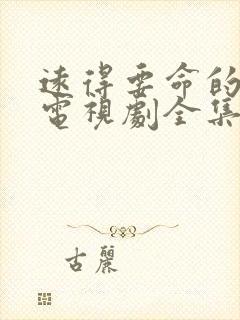 遠得要命的
電視劇全集
古麗